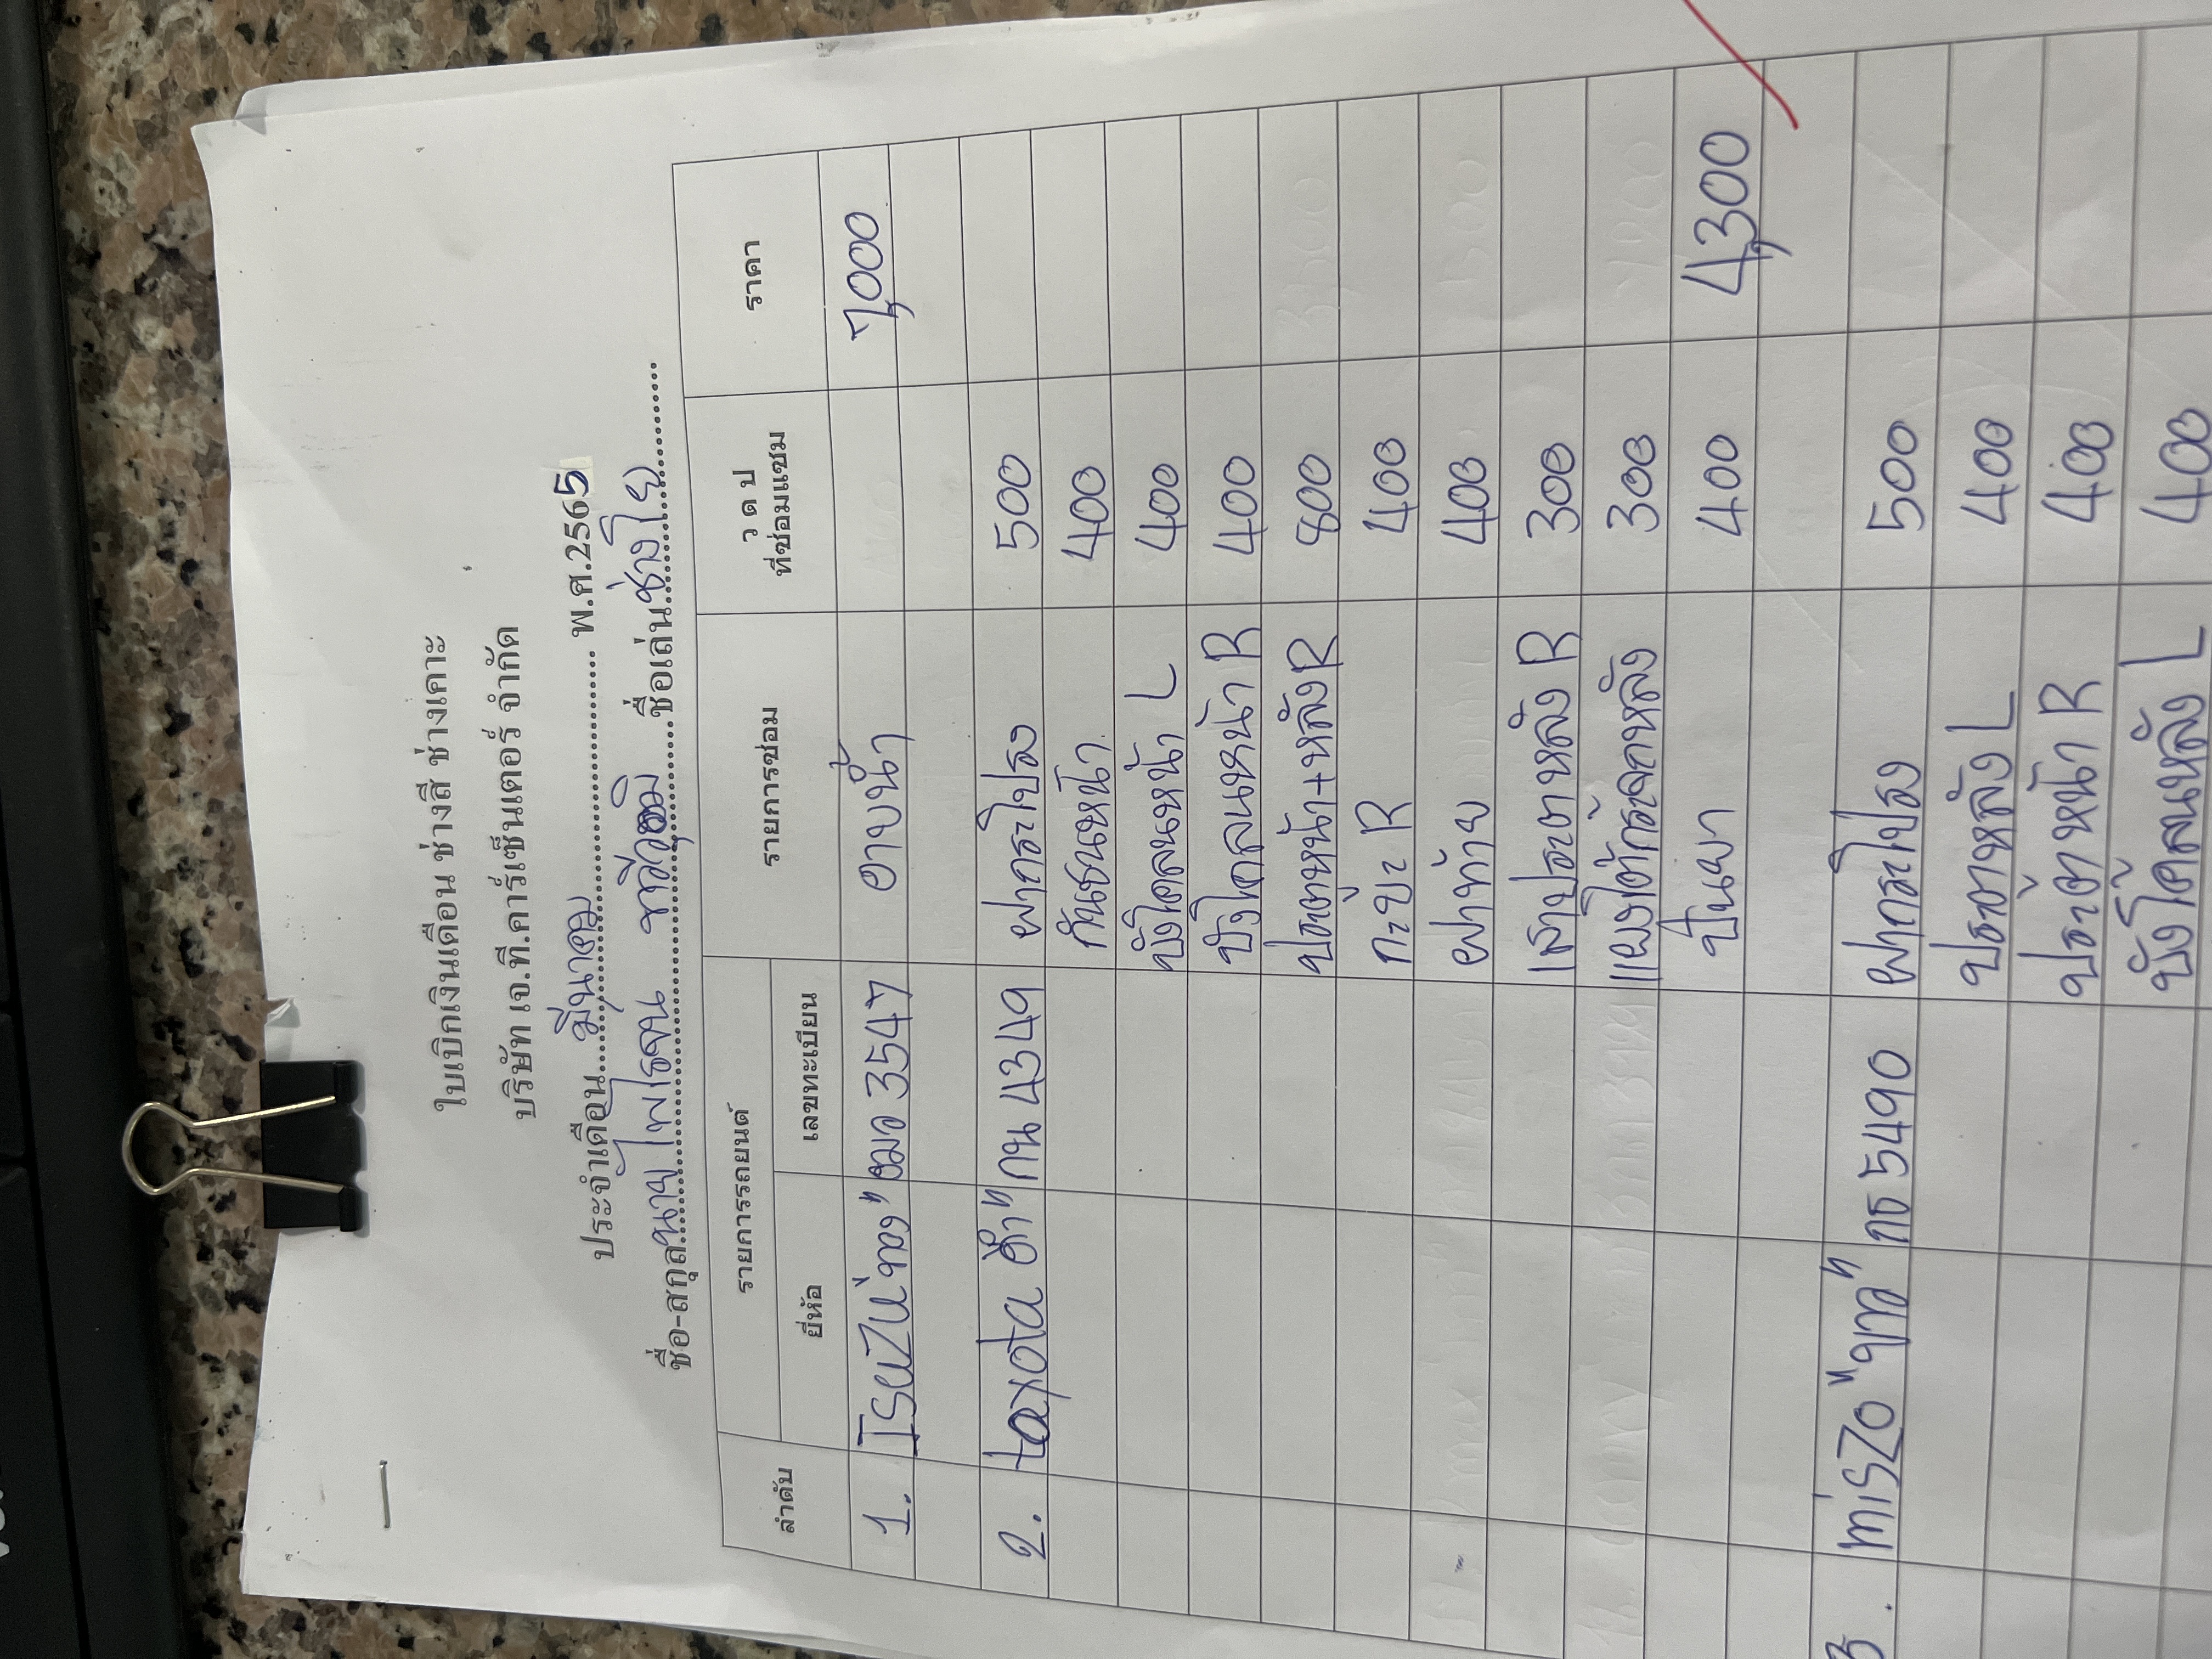 ใบเบิกเงินเดือน ช่างสี ช่างเคาะ
บริษัท เจ.ที.คาร์เซ็นเตอร์ จำกัด
ประจำเดือน...มีนาคม... พ.ศ.2565
ชื่อ-สกุล นาย ไพโรจน์ ชื่อเล่น ช่างโย
ลำดับ รายการรถยนต์ รายการซ่อม ว ด ป ที่ซ่อมแซม ราคา
ยี่ห้อ เลขทะเบียน
1. ISUZU "ทอง" 3547 อาบน้ำ 7,000
2. toyota ดำ" กน 4349 ฝากระโปรง 500
กันชนหน้า 400
บังโคลนหน้า L 400
บังโคลนหน้า R 400
ประตูหน้า+หลัง R 800
กะบะ R 400
ฝาท้าย 400
เสาประตูหลัง R 300
แผงใต้กระจกหลัง 300
ปั่นเงา 400 4,300
3. miSZO "ขาว" กธ 5490 ฝากระโปรง 500
ประตูหลัง L 400
ประตูหน้า R 400
บังโคลนหลัง L 400